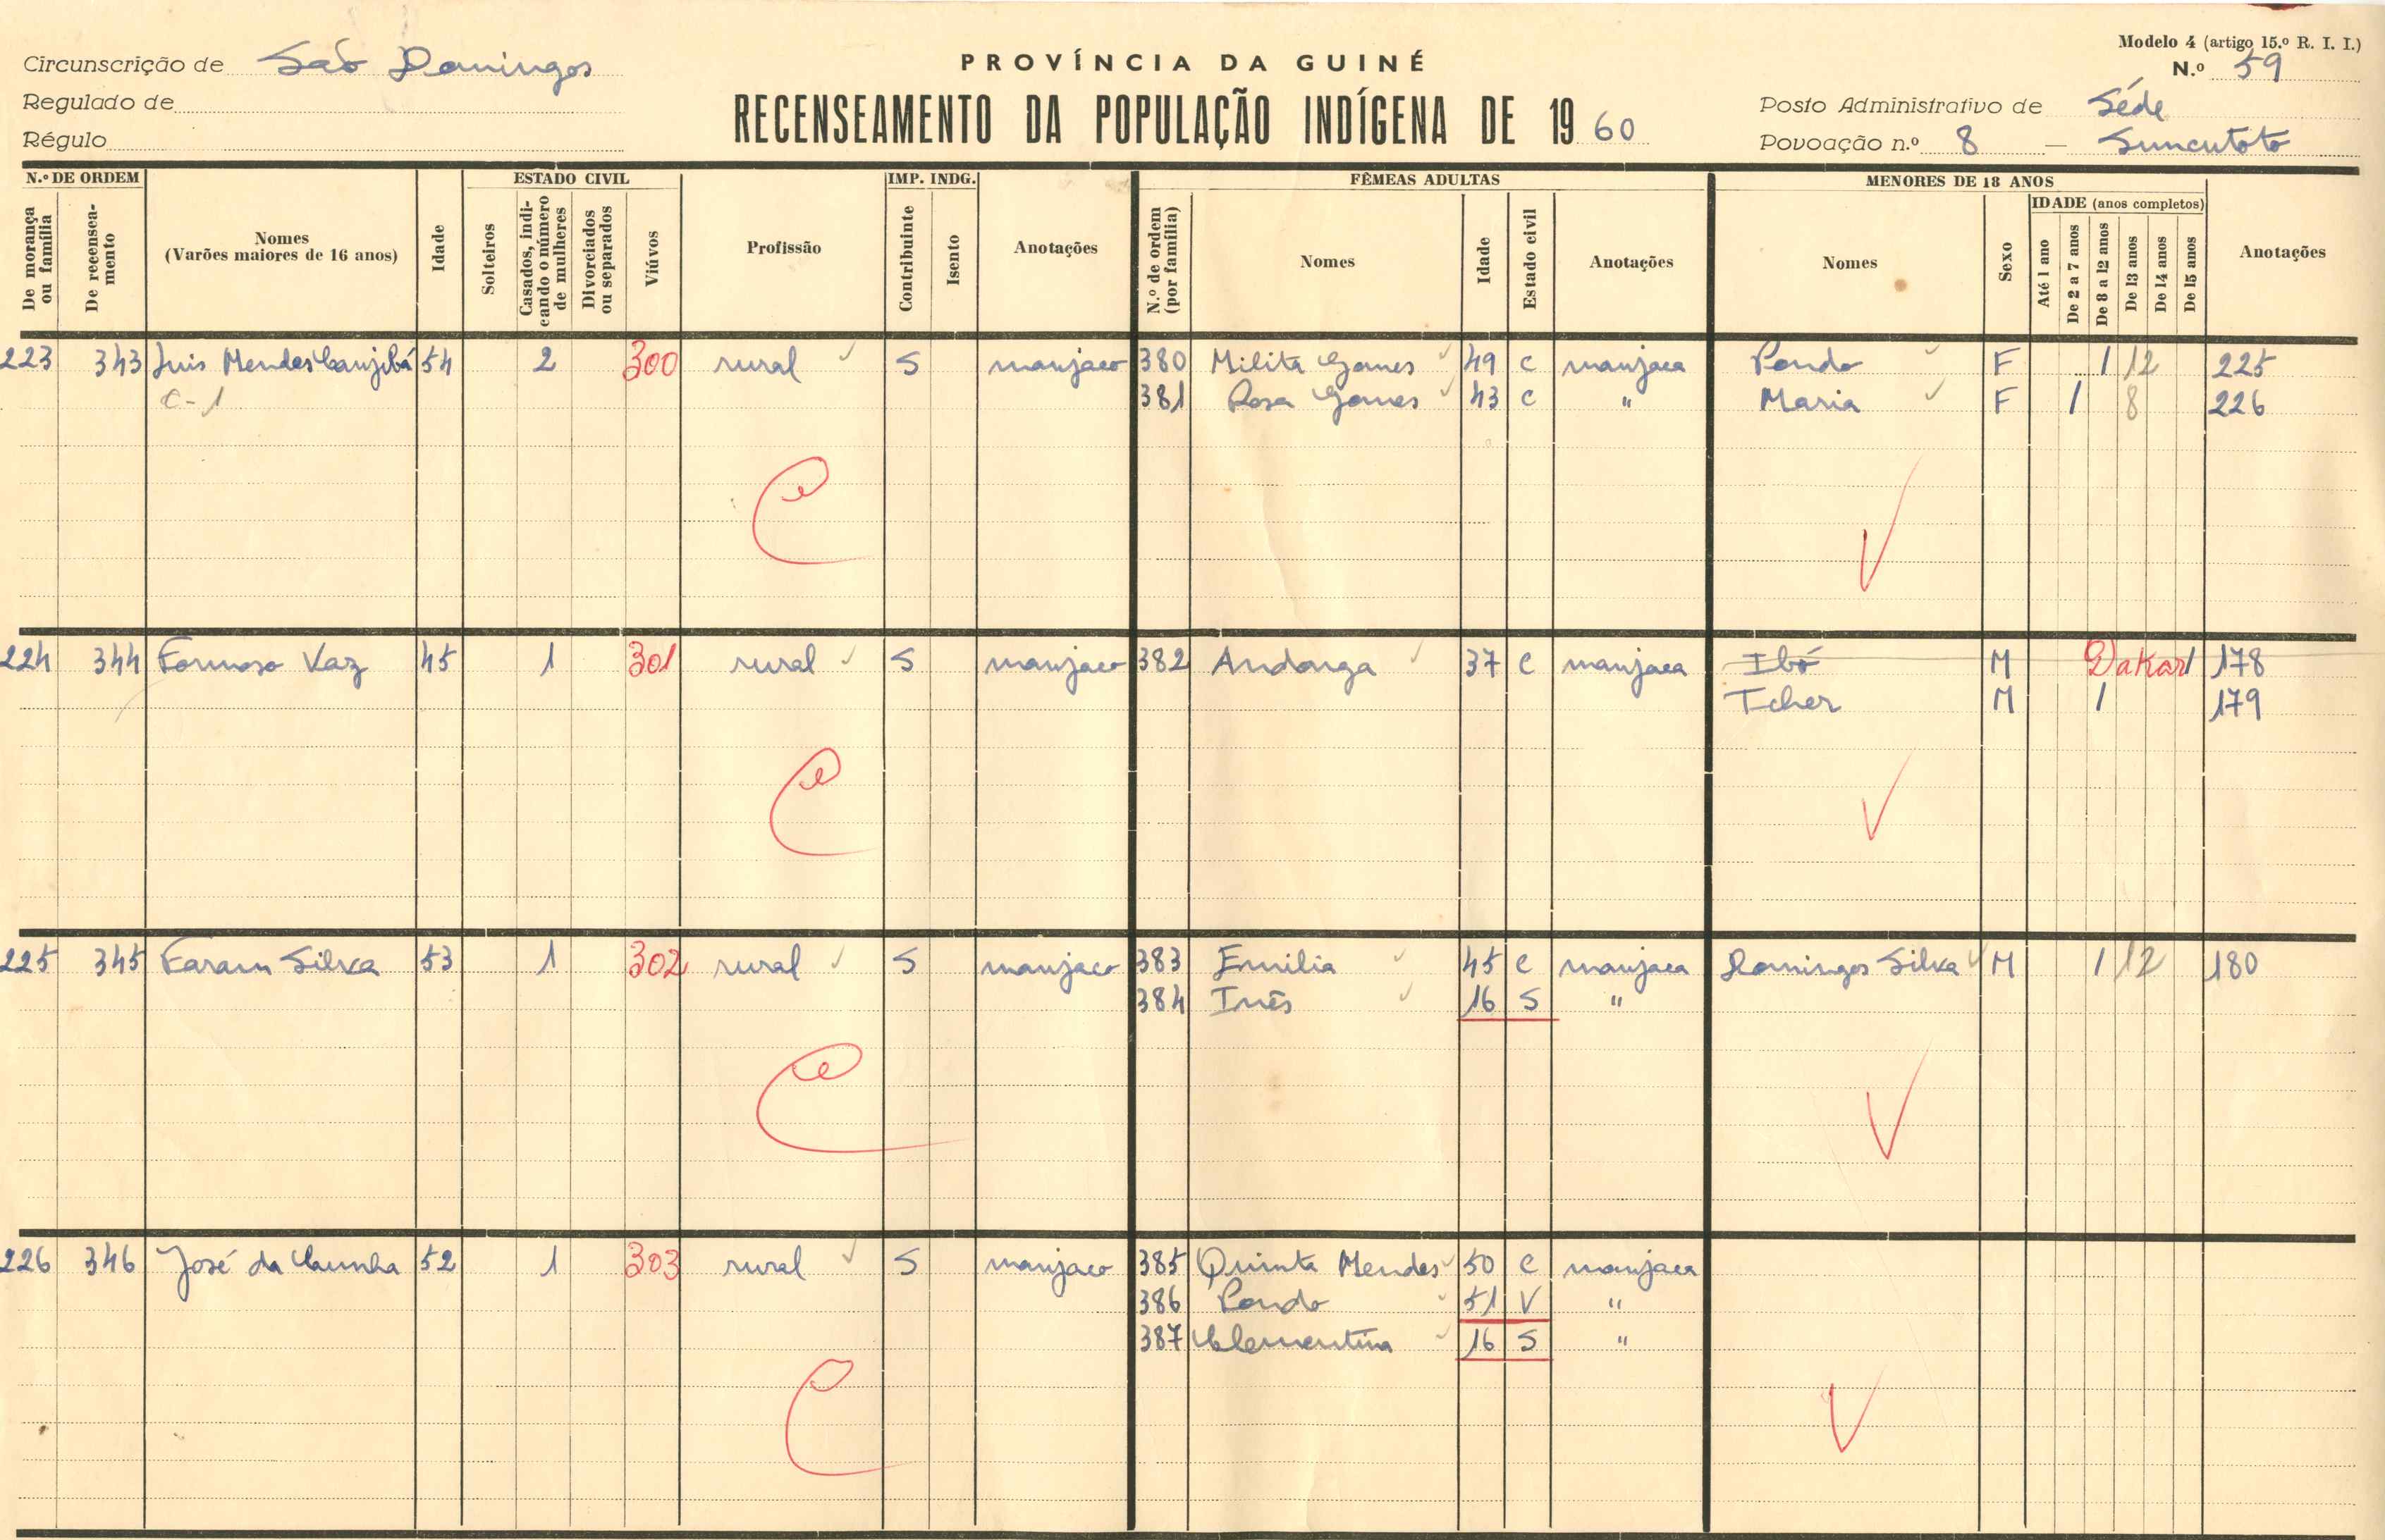 Modelo 4 (artigo 15.º R. I. I.)
Circunscrição de Saõ Domingos
PROVÍNCIA DA GUINÉ
N.º 59
Regulado de
RECENSEAMENTO DA POPULAÇÃO INDÍGENA DE 1960
Posto Administrativo de Séde
Régulo
Povoação n.º 8 — Suncutoto
N.º DE ORDEM
De morança ou família
De recenseamento
Nomes
(Varões maiores de 16 anos)
Idade
ESTADO CIVIL
Solteiros
Casados, indicando o número de mulheres
Divorciados ou separados
Viúvos
Profissão
IMP. INDG.
Contribuinte
Isento
Anotações
FÊMEAS ADULTAS
N.º de ordem (por família)
Nomes
Idade
Estado civil
Anotações
MENORES DE 18 ANOS
Nomes
Sexo
IDADE (anos completos)
Até 1 ano
De 2 a 7 anos
De 8 a 12 anos
De 13 anos
De 14 anos
De 15 anos
Anotações
223 343 Luis Mendes 54 2 300 rural S manjaco 380 Milita Gomes 49 c manjaca Pondo F 1 12 225
C-1 381 Rosa Gomes 43 c " Maria F 1 8 226
224 344 Formoso Vaz 45 1 301 rural S manjaco 382 Andonga 37 c manjaca Ibó M Dakar 1 178
Tcher M 1 179
225 345 Faram Silva 53 1 302 rural S manjaco 383 Emilia 45 c manjaca Domingos Silva M 1 12 180
384 Inês 16 S "
226 346 José da Cunha 52 1 303 rural S manjaco 385 Quinta Mendes 50 c manjaca
386 Pondo 51 V "
387 Clementina 16 S "